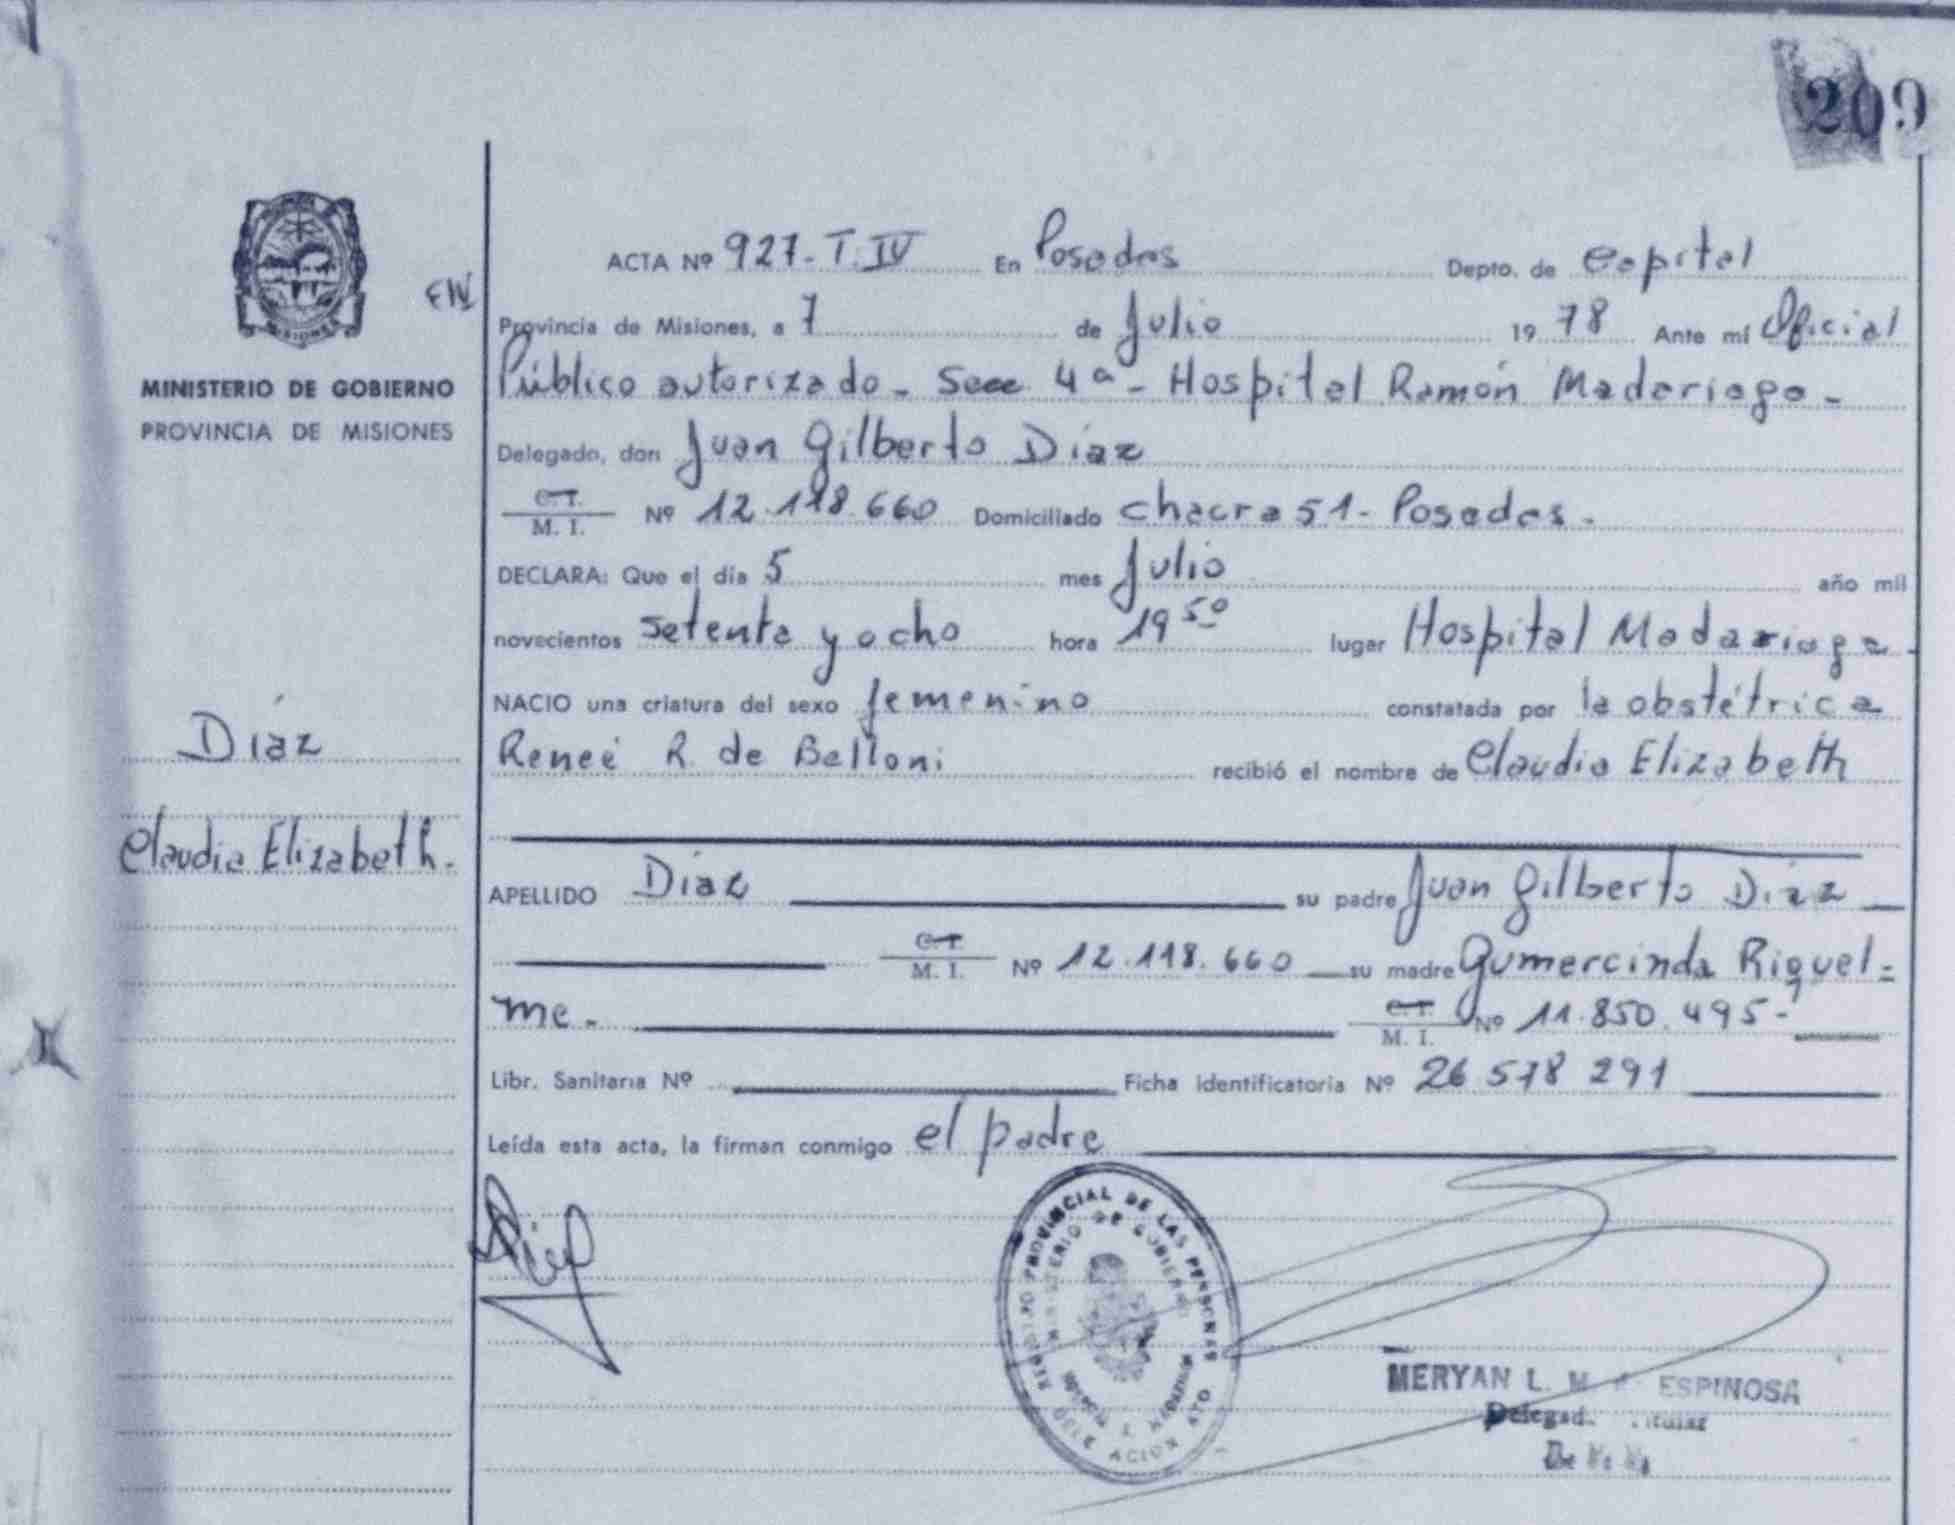 209
MISIONES
MINISTERIO DE GOBIERNO
PROVINCIA DE MISIONES
Díaz
Claudia Elizabeth.
ACTA Nº 927-T.IV En Posadas Depto. de Capital
Provincia de Misiones, a 7 de Julio 1978 Ante mí Oficial
Público autorizado - Secc 4ª - Hospital Ramón Madariaga -
Delegado, don Juan Gilberto Díaz
C. I.
M. I. Nº 12.118.660 Domiciliado chacra 51 - Posadas.
DECLARA: Que el día 5 mes Julio año mil
novecientos setenta y ocho hora 19 50 lugar Hospital Madariaga.
NACIO una criatura del sexo femenino constatada por la obstétrica
Reneé R. de Belloni recibió el nombre de Claudia Elizabeth
APELLIDO Díaz su padre Juan Gilberto Díaz
C. I.
M. I. Nº 12.118.660 su madre Gumercinda Riquel=
me. C. I.
M. I. Nº 11.850.495-
Libr. Sanitaria Nº Ficha identificatoria Nº 26 578 291
Leída esta acta, la firman conmigo el padre
REGISTRO PROVINCIAL DE LAS PERSONAS
MINISTERIO DE GOBIERNO
MERYAN L. M ESPINOSA